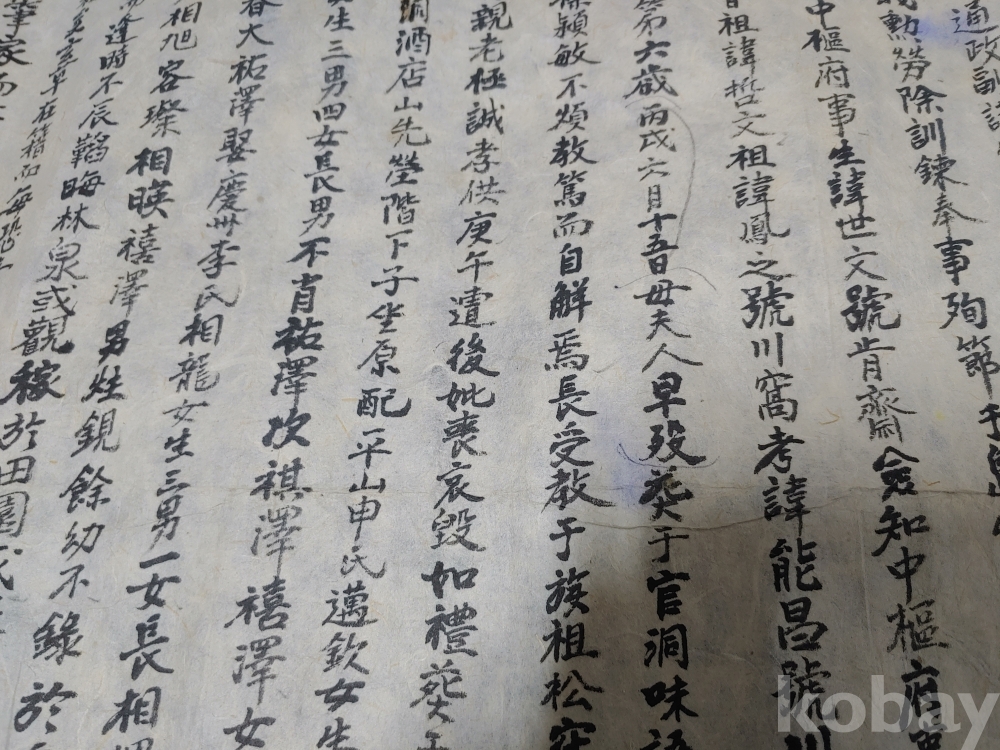 通政副
勲勞除訓鍊奉事殉節
中樞府事生諱世文號肯齋僉知中樞府
祖諱哲文祖諱鳳之號川窩考諱能昌號川
第六歲丙戌六月十五日母夫人早殁葬于官洞味
穎敏不煩教篤而自解焉長受教于族祖松
親老極誠孝供庚午遭後妣喪哀毀如禮葬于
洞酒店山先塋階下子坐原配平山申氏邁欽女生
生三男四女長男不肖祐澤次祺澤禧澤女
春大祐澤娶慶州李氏相龍女生三男一女長相
相旭容璨相暎禧澤男炷鋧餘幼不錄於
逢時不辰韜晦林泉或觀稼於田園
草在箱而每
kobay